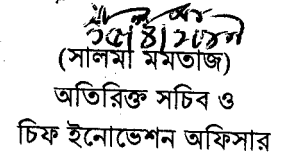 (সালমা মমতাজ)
অতিরিক্ত সচিব ও
চিফ ইনোভেশন অফিসার